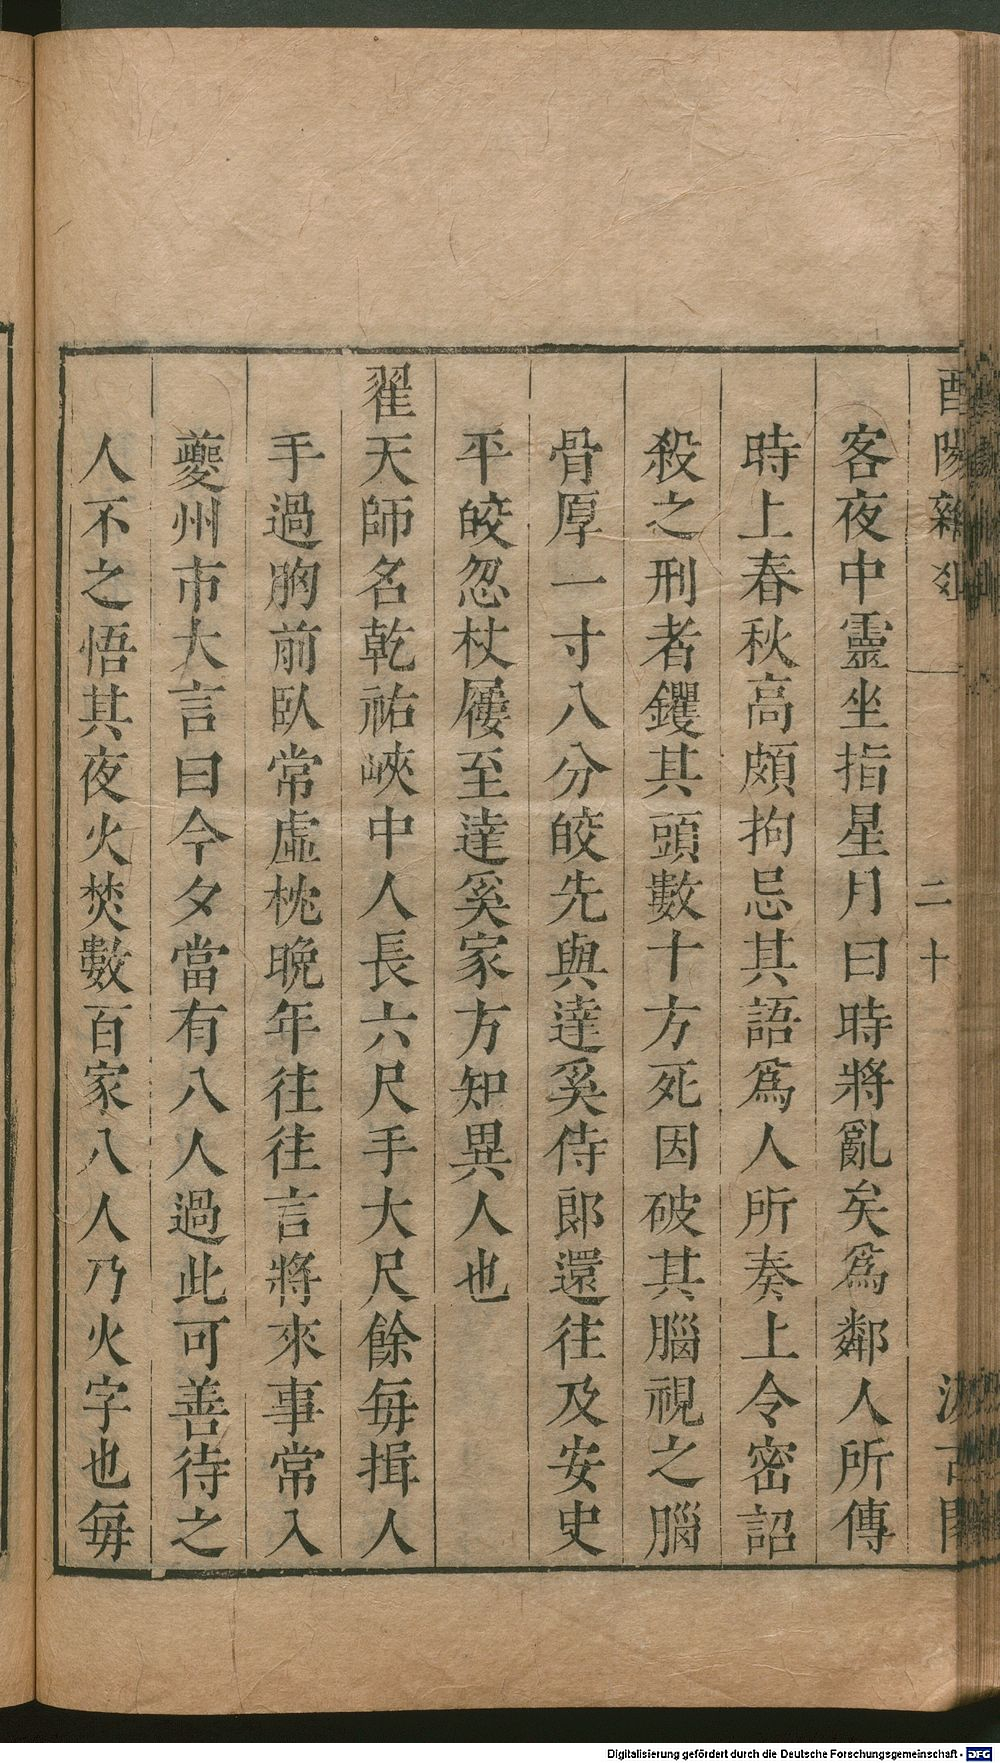 酉陽雜俎
二十
汲古閣
客夜中靈坐指星月曰時將亂矣爲鄰人所傳
時上春秋高頗拘忌其語爲人所奏上令密詔
殺之刑者钁其頭數十方死因破其腦視之腦
骨厚一寸八分皎先與達奚侍郎還往及安史
平皎忽杖屨至達奚家方知異人也
翟天師名乾祐峽中人長六尺手大尺餘每揖人
手過胸前臥常虛枕晚年往往言將來事常入
夔州市大言曰今夕當有八人過此可善待之
人不之悟其夜火焚數百家八人乃火字也每
Digitalisierung gefördert durch die Deutsche Forschungsgemeinschaft - DFG